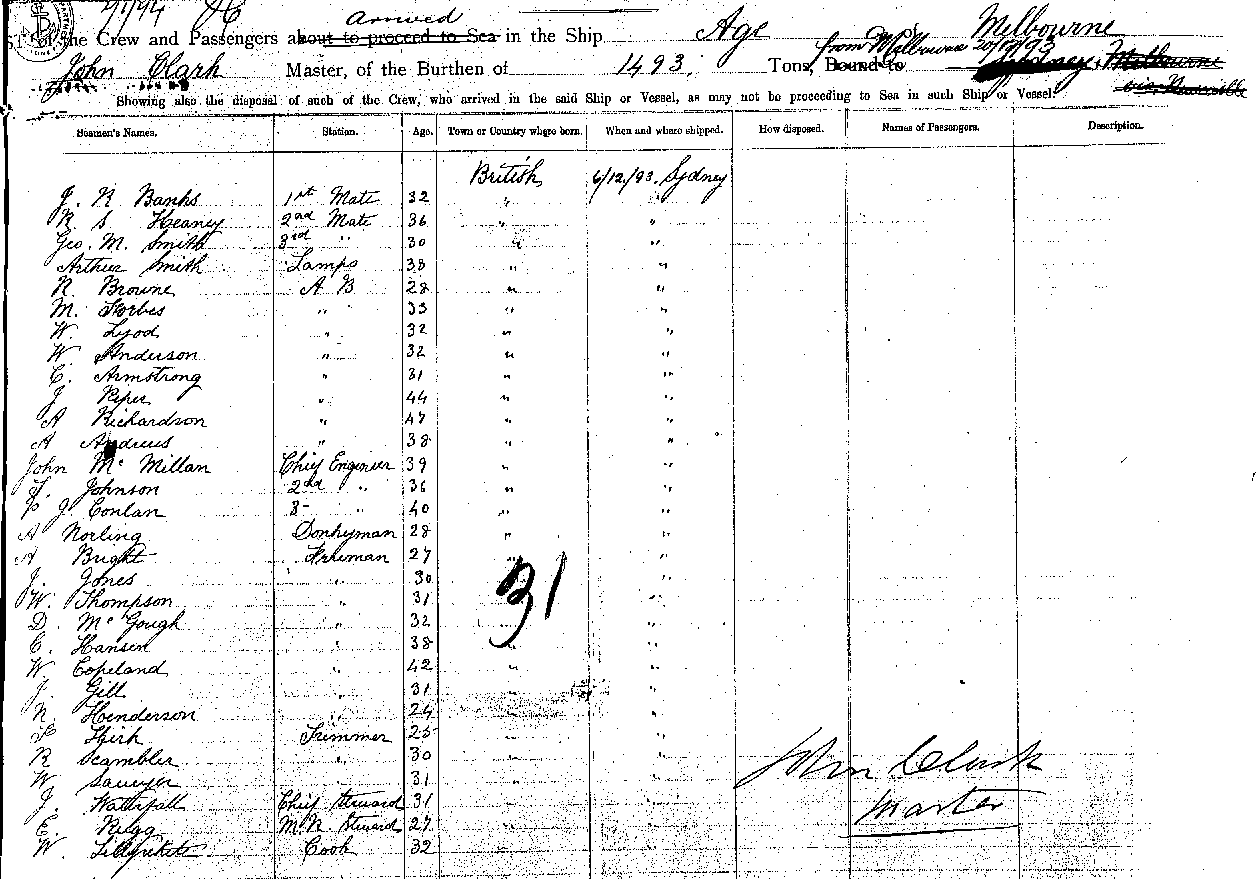 Arrived
of the Crew and Passengers about to proceed to Sea in the Ship Age Melbourne
John Clark Master, of the Burthen of 1493, Tons, Bound to from Melbourne Sydney Melbourne
Showing also the disposal of such of the Crew, who arrived in the said Ship or Vessel, as may not be proceeding to Sea in such Ship or Vessel
Seamen's Names. Station. Age. Town or Country where born. When and where shipped. How disposed. Names of Passengers. Description.
British 6/12/93. Sydney
J. R Banks 1st Mate 32 " "
R S Heaney 2nd Mate 36 " "
Geo. M. Smith 3rd " 30 " "
Arthur Smith Lamps 38 " "
N. Browne A B 28 " "
M. Forbes " 33 " "
W. Lyod " 32 " "
W Anderson " 32 " "
C. Armstrong " 31 " "
J Piper " 44 " "
A Richardson " 47 " "
A Andrews " 38 " "
John Mc Millan Chief Engineer 39 " "
J. Johnson 2nd " 36 " "
P J. Conlan 3- " 40 " "
A Norling Donkeyman 28 " "
A Bright Fireman 27 " "
J. Jones " 30 "
31
W. Thompson " 31 "
D. Mc Gough " 32 "
C. Hansen " 38 "
W. Copeland " 42 " "
J. Gill " 31 " "
N. Henderson " 24 " "
Kirk Trimmer 25 " "
R Scambler " 30 " "
W Sawyer " 31 " "
John Clark
J. Waterfall Chief Steward 31 " "
Master
E. Rugg M.R. Steward 27 " "
W. Cook 32 "